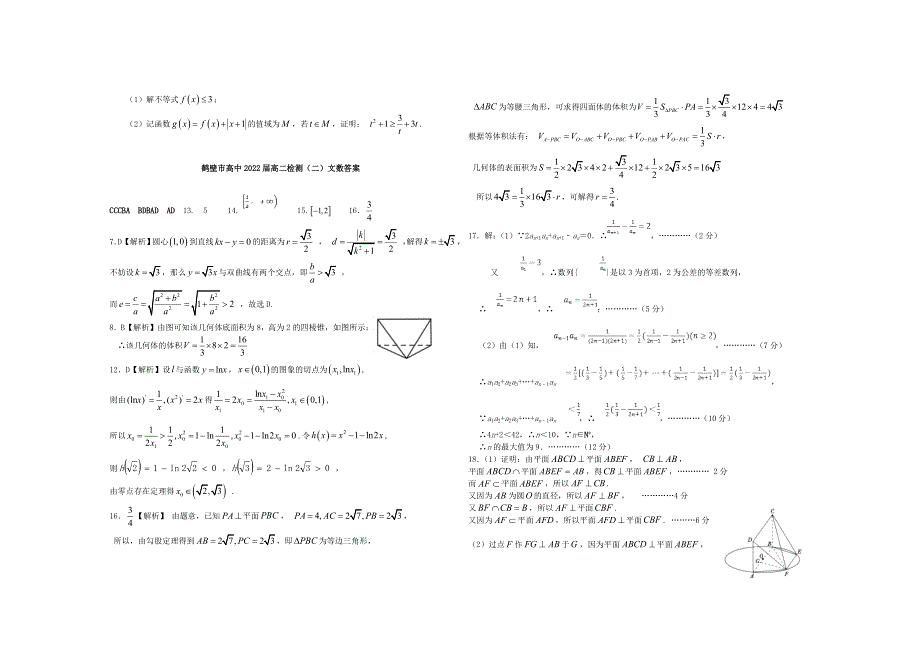 （1）解不等式 f(x)≤3；
（2）记函数 g(x)=f(x)+|x+1| 的值域为 M，若 t∈M，证明： t²+1≥3/t+3t．
鹤壁市高中 2022 届高二检测（二）文数答案
CCCBA BDBAD AD 13. 5 14. [1/2, +∞) 15. [-1,2] 16. 3/4
7.D【解析】圆心(1,0)到直线 kx-y=0 的距离为 r=√3/2 ， d=|k|/√(k²+1)=√3/2 ,解得 k=±√3，
不妨设 k=√3，那么 y=√3x 与双曲线有两个交点，即 b/a>√3 ，
而 e=c/a=√((a²+b²)/a²)=√(1+b²/a²)>2 ，故选 D.
8．B【解析】由图可知该几何体底面积为 8，高为 2 的四棱锥，如图所示：
∴该几何体的体积 V=1/3×8×2=16/3
12．D【解析】设 l 与函数 y=lnx，x∈(0,1)的图象的切点为(x₁,lnx₁)。
则由(lnx)′=1/x,(x²)′=2x 得 1/x₁=2x₀=(lnx₁-x₀²)/(x₁-x₀),x₁∈(0,1)，
所以 x₀=1/2x₁>1/2,x₀²=1-ln1/2x₀,x₀²-1-ln2x₀=0．令 h(x)=x²-1-ln2x，
则 h(√2)=1-ln2√2<0 ，h(√3)=2-ln2√3>0 ，
由零点存在定理得 x₀∈(√2,√3) ．
16．3/4【解析】 由题意，已知 PA⊥平面 PBC， PA=4,AC=2√7,PB=2√3，
所以，由勾股定理得到 AB=2√7,PC=2√3，即 ΔPBC 为等边三角形，
ΔABC 为等腰三角形，可求得四面体的体积为 V=1/3 S_ΔPBC·PA=1/3×√3/4×12×4=4√3
根据等体积法有： V_A-PBC=V_O-ABC+V_O-PBC+V_O-PAB+V_O-PAC=1/3 S·r，
几何体的表面积为 S=1/2×2√3×4×2+√3/4×12+1/2×2√3×5=16√3
所以 4√3=1/3×16√3·r，可解得 r=3/4．
17．解：（1）∵2aₙ₊₁aₙ+aₙ₊₁﹣aₙ＝0．∴1/aₙ₊₁-1/aₙ=2，…………（2 分）
又 1/a₁=3，∴数列{1/aₙ}是以 3 为首项，2 为公差的等差数列，
∴1/aₙ=2n+1，∴aₙ=1/(2n+1)；…………（5 分）
（2）由（1）知，aₙ₋₁aₙ=1/((2n-1)(2n+1))=1/2(1/(2n-1)-1/(2n+1))(n≥2)，…………（7 分）
∴a₁a₂+a₂a₃+…+aₙ₋₁aₙ=1/2[(1/3-1/5)+(1/5-1/7)+…+(1/(2n-1)-1/(2n+1))]=1/2(1/3-1/(2n+1))，
∵a₁a₂+a₂a₃+…+aₙ₋₁aₙ<1/7，∴1/2(1/3-1/(2n+1))<1/7，…………（10 分）
∴4n+2＜42，∴n＜10，∵n∈N*，
∴n 的最大值为 9．…………（12 分）
18．（1）证明：由平面 ABCD⊥平面 ABEF， CB⊥AB，
平面 ABCD∩平面 ABEF=AB，得 CB⊥平面 ABEF，………… 2 分
而 AF⊂平面 ABEF，所以 AF⊥CB．
又因为 AB 为圆 O 的直径，所以 AF⊥BF， …………4 分
又 BF∩CB=B，所以 AF⊥平面 CBF．
又因为 AF⊂平面 AFD，所以平面 AFD⊥平面 CBF．………6 分
（2）过点 F 作 FG⊥AB 于 G，因为平面 ABCD⊥平面 ABEF，
C
D
B
E
O
G
A
F